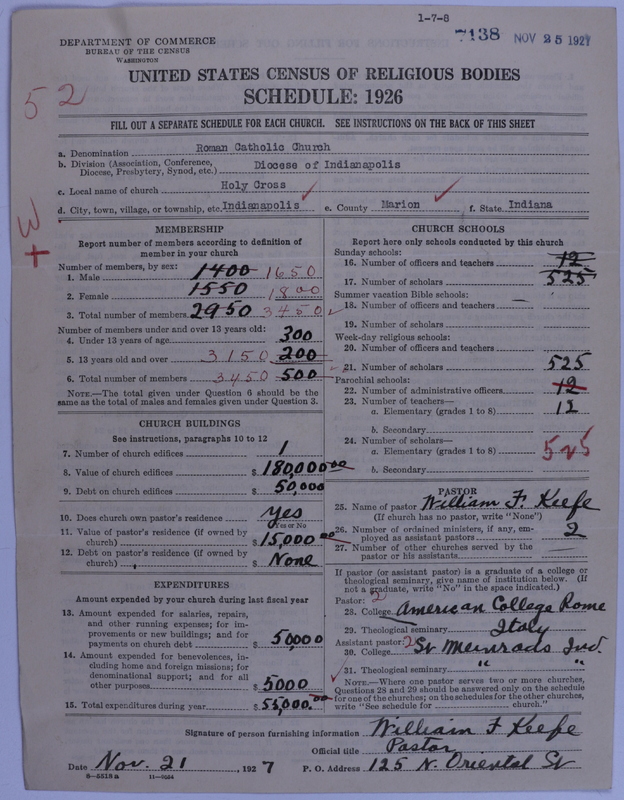 1-7-8
7138 NOV 25 1927
DEPARTMENT OF COMMERCE
BUREAU OF THE CENSUS
WASHINGTON
52
UNITED STATES CENSUS OF RELIGIOUS BODIES
SCHEDULE: 1926
FILL OUT A SEPARATE SCHEDULE FOR EACH CHURCH. SEE INSTRUCTIONS ON THE BACK OF THIS SHEET
a. Denomination Roman Catholic Church
b. Division (Association, Conference, Diocese, Presbytery, Synod, etc.) Diocese of Indianapolis
c. Local name of church Holy Cross
d. City, town, village, or township, etc. Indianapolis e. County Marion f. State Indiana
W
+
MEMBERSHIP
Report number of members according to definition of
member in your church
Number of members, by sex:
1. Male 1400 1650
2. Female 1550 1800
3. Total number of members 2950 3450
Number of members under and over 13 years old:
4. Under 13 years of age 300
5. 13 years old and over 3150 200
6. Total number of members 3450 500
NOTE.—The total given under Question 6 should be the
same as the total of males and females given under Question 3.
CHURCH BUILDINGS
See instructions, paragraphs 10 to 12
7. Number of church edifices 1
8. Value of church edifices $ 180,000 00
9. Debt on church edifices $ 50,000
10. Does church own pastor's residence Yes
Yes or No
11. Value of pastor's residence (if owned by
church) $ 15,000 00
12. Debt on pastor's residence (if owned by
church) $ None
EXPENDITURES
Amount expended by your church during last fiscal year
13. Amount expended for salaries, repairs,
and other running expenses; for im-
provements or new buildings; and for
payments on church debt $ 50,000
14. Amount expended for benevolences, in-
cluding home and foreign missions; for
denominational support; and for all
other purposes $ 5000
15. Total expenditures during year $ 55,000.00
CHURCH SCHOOLS
Report here only schools conducted by this church
Sunday schools:
16. Number of officers and teachers 12
17. Number of scholars 525
Summer vacation Bible schools:
18. Number of officers and teachers
19. Number of scholars
Week-day religious schools:
20. Number of officers and teachers
21. Number of scholars 525
Parochial schools:
22. Number of administrative officers 12
23. Number of teachers—
a. Elementary (grades 1 to 8) 12
b. Secondary
24. Number of scholars—
a. Elementary (grades 1 to 8) 525
b. Secondary
PASTOR
25. Name of pastor William F. Keefe
(If church has no pastor, write "None")
26. Number of ordained ministers, if any, em-
ployed as assistant pastors 2
27. Number of other churches served by the
pastor or his assistants
If pastor (or assistant pastor) is a graduate of a college or
theological seminary, give name of institution below. (If
not a graduate, write "No" in the space indicated.)
Pastor: 2
28. College American College Rome
29. Theological seminary Italy
Assistant pastor: 2
30. College St Meinrads Ind.
31. Theological seminary " "
NOTE.—Where one pastor serves two or more churches,
Questions 28 and 29 should be answered only on the schedule
for one of the churches; on the schedules for the other churches,
write "See schedule for church."
Signature of person furnishing information William F Keefe
Official title Pastor
Date Nov. 21, 1927 P. O. Address 125 N. Oriental St